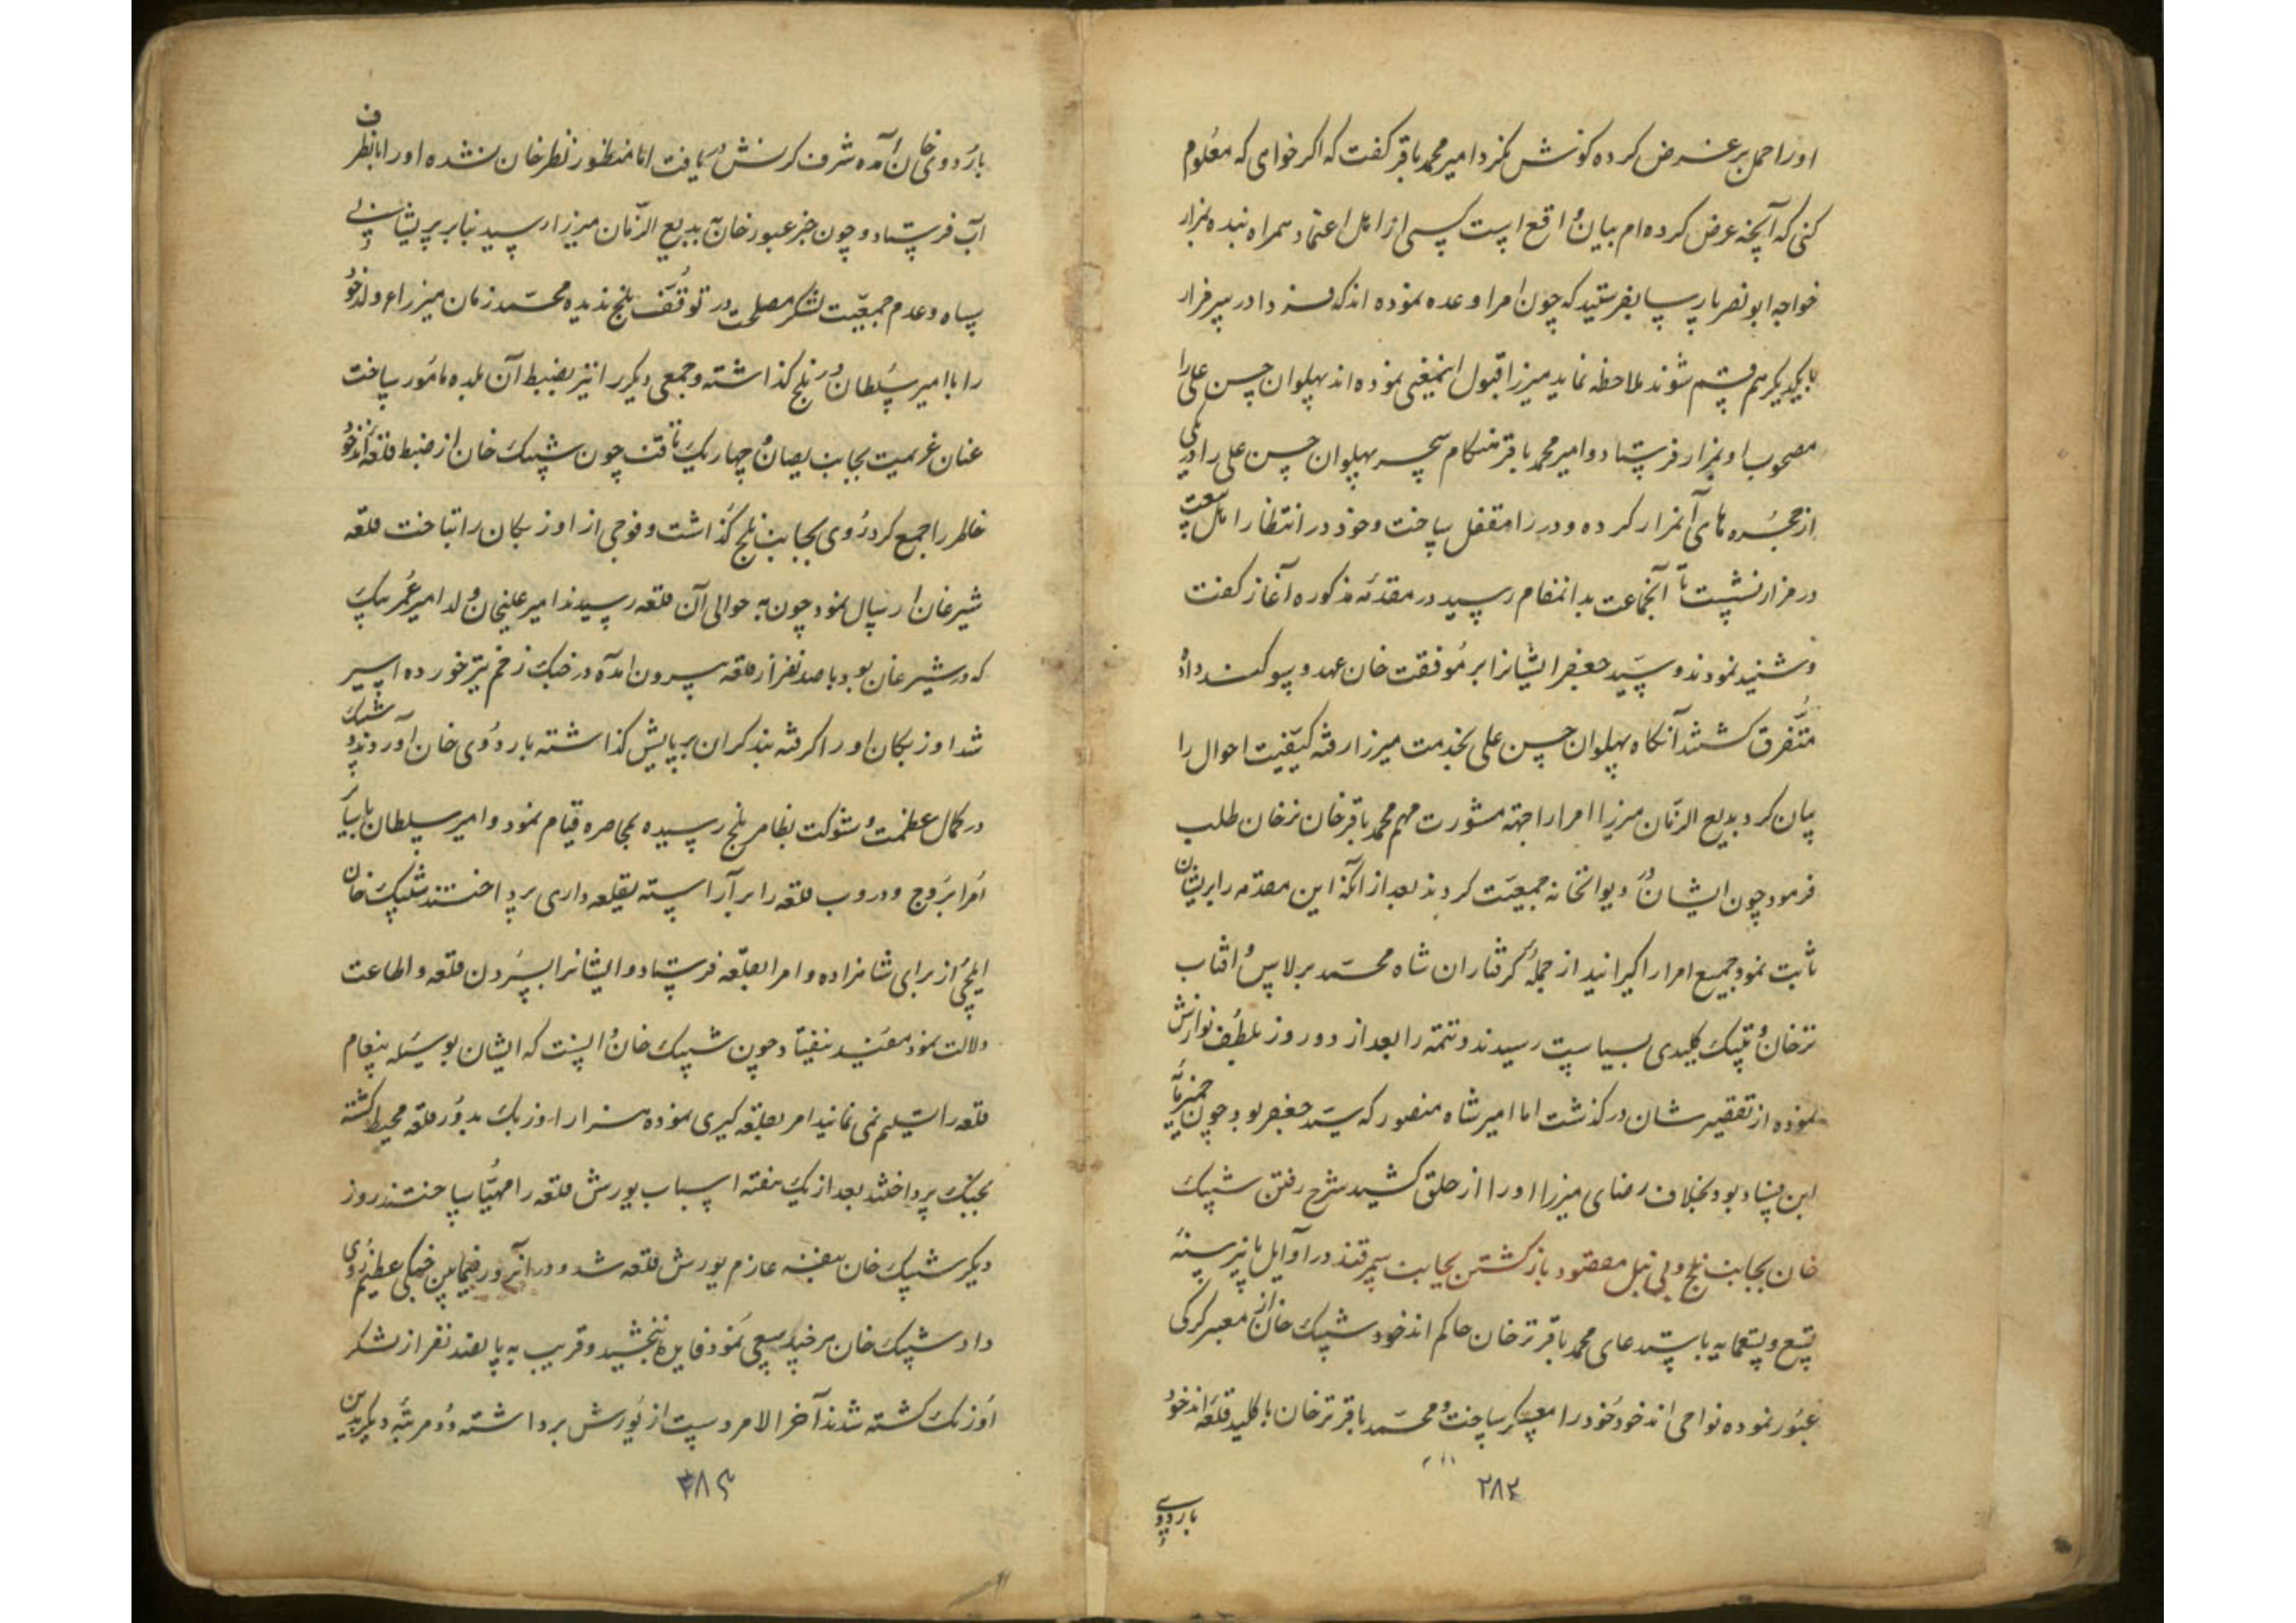 او را حمل بر غرض کرده کوشش نکرد امیر محمد باقر کفت که اکر خواهی که معلوم
کنی که آنچه عرض کرده‌ام بیان واقع است کسی از اهل اعتماد همراه بنده بمزار
خواجه ابو نصر پارسا بفرستید که چون امرا وعده نموده‌اند که فردا در سر مزار
با یکدیکر هم قسم شوند ملاحظه نماید میرزا قبول اینمعنی نموده‌اند پهلوان حسن علی را
مصحوب او بمزار فرستاد و امیر محمد باقر هنکام سحر پهلوان حسن علی را در یکی
از حجره‌های آنمزار کرده و در را مقفل ساخت و خود در انتظار اهل بیعت
در مزار نشست تا آنجماعت بدانمقام رسید در مقدمه مذکوره آغاز کفت
و شنید نمودند و سید جعفر ایشانرا بر موفقت خان عهد و سوکند داد
متفرق کشتند آنکاه پهلوان حسن علی بخدمت میرزا رفته کیفیت احوال را
بیان کرد بدیع الزمان میرزا امرا را جهته مشورت مهم محمد باقر خان ترخان طلب
فرمود چون ایشان در دیوانخانه جمعیت کردند بعد از آنکه این مقدمه را بر ایشان
ثابت نمود جمیع امرا را کیرانید از جمله کرفتاران شاه محمد برلاس و افتاب
ترخان و تپک کلیدی بسیاست رسیدند و تتمه را بعد از دو روز بلطف نوازش
نموده از تقصیر شان در کذشت اما امیر شاه منصور که سید جعفر بود چون خمیر مایه
این فساد بود بخلاف رضای میرزا او را از حلق کشید شرح رفتن شیبک
خان بجانب بلخ و بی نیل مقصود باز کشتن بجانب سمرقند در اوایل پائیز سنهٔ
تسع و تسعمایه باستدعای محمد باقر ترخان حاکم اندخود شیبک خان از معبر کرکی
عبور نموده نواحی اندخود خود را معسکر ساخت و محمد باقر ترخان با کلید قلعه اندخود
۲۸۳
باردوی
باردوی خان آمده شرف کرنش دریافت اما منظور نظر خان نشده او را بانطرف
آب فرستاد و چون خبر عبور خان به بدیع الزمان میرزا رسید بنابر پریشانی
سپاه و عدم جمعیت لشکر مصلحت در توقف بلخ ندیده محمد زمان میرزا ولد خود
را با امیر سلطان در بلخ کذاشته و جمعی دیکر را نیز بضبط آن بلده مامور ساخت
عنان عزیمت بجانب یصان و چهاریک تافت چون شیبک خان از ضبط قلعه اندخود
خاطر را جمع کرد روی بجانب بلخ کذاشت و فوجی از اوزبکان را بتاخت قلعه
شیرغان ارسال نمود چون به حوالی آن قلعه رسیدند امیر علیخان ولد امیر عمر بیک
که در شیرغان بود با صد نفر از قلعه بیرون امده در جنک زخم تیر خورده اسیر
شد اوزبکان او را کرفته بند کران بر پایش کذاشته باردوی خان آوردند و شیبک
در کمال عظمت و شوکت بظاهر بلخ رسیده بمحاصره قیام نمود و امیر سلطان با سایر
امرا بروج و دروب قلعه را بر آراسته بقلعه داری پرداختند شیبک خان
ایلچی از برای شاهزاده و امرا بقلعه فرستاد و ایشانرا بسپردن قلعه و اطاعت
دلالت نمود مفید نیفتاد چون شیبک خان دانست که ایشان بوسیله پیغام
قلعه را تسلیم نمی نمایند امر بقلعه کیری نموده هزار اوزبک بدور قلعه محیط کشته
بجنک پرداختند بعد از یک هفته اسباب یورش قلعه را مهیا ساختند روز
دیکر شیبک خان بنفسه عازم یورش قلعه شد و در آنروز فیمابین جنکی عظیم روی
داد شیبک خان هر چند سعی نمود فایده نبخشید و قریب به پانصد نفر از لشکر
اوزبک کشته شدند آخر الامر دست از یورش برداشته و دو مرتبه دیکر بدین
۲۸۴